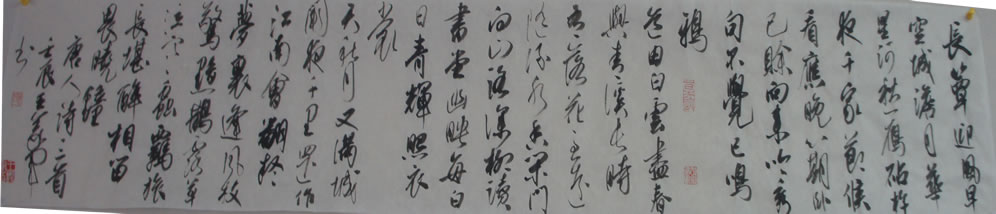 長簟迎風早
空城澹月華
星河秋一雁砧杵
夜千家節候
看應晚心期卧
已賒向來吟秀
句不覺已鳴
鴉
道由白雲盡春
與青溪長時
有落花至遠
隨流水香閑門
向山路深柳讀
書堂幽映每白
日青輝照衣
裳
天秋月又滿城
闕夜千里還作
江南會翻疑
夢裏逢風枝
驚暗鵲露草
泣寒蟲羈旅
長堪醉相留
畏曉鐘
唐人詩三首
壬辰王
书